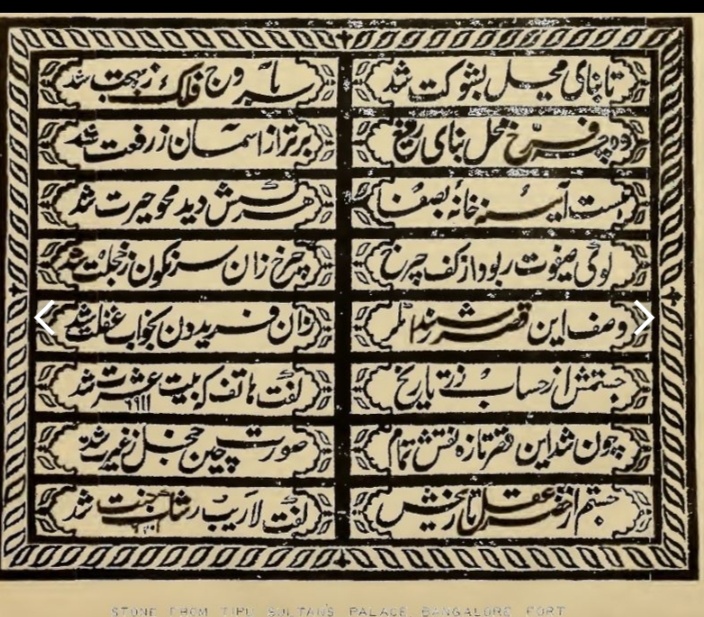 تا بنای محل بشوکت شد سر باوج فلک ز بهجت شد
وه چه فرخ محل بنای رفیع برتر از آسمان ز رفعت شد
هست آیینه خانهٔ بصفا هر کسش دید محو حیرت شد
گوی صفوت ربود از کف چرخ چرخ زان سرنگون ز خجلت شد
وصف این قصر شنید مگر زان فریدون بخواب غفلت شد
جستمش از حساب زر تاریخ گفت هاتف که بیت عشرت شد
چون شد این قصر تازه نقش تمام صورت چین خجل ز غیرت شد
جستم از خضر عقل تاریخش گفت لاریب رشک جنت شد
STONE FROM TIPU SULTAN'S PALACE BANGALORE FORT